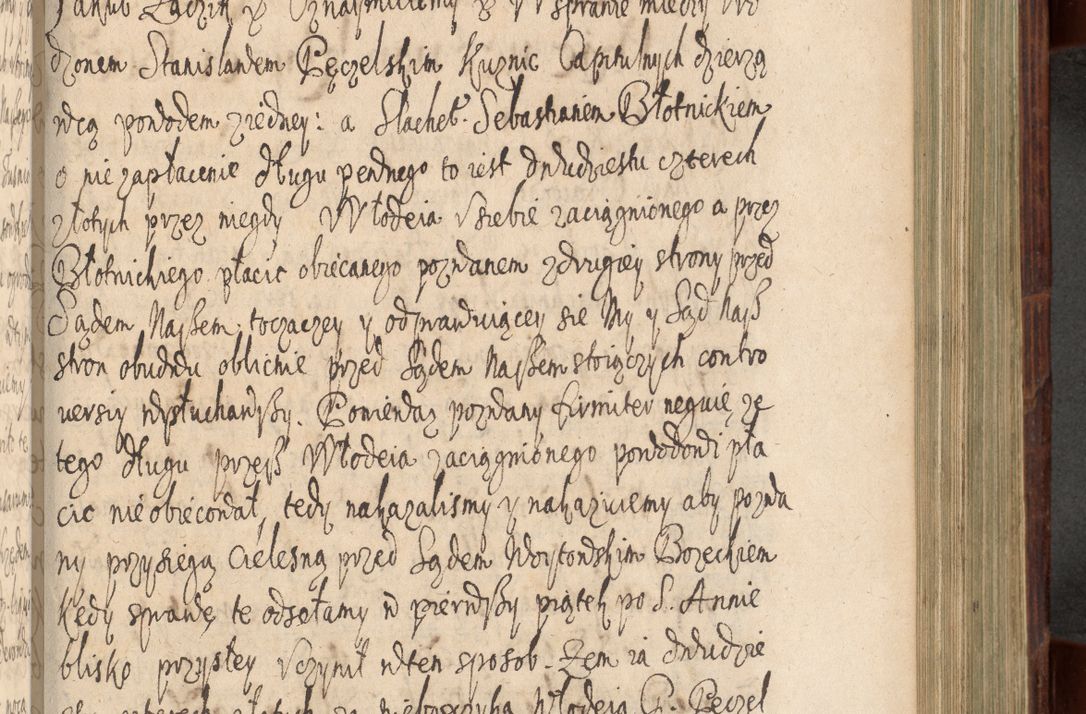 Jakub Zadzik &c Oznajmuiemy &c W sprawie między Uro
dzonem Stanisławem Pęczelskim Kuznic Capitulnych dzierza
wcą powodem ziedney: a Slachet. Sebastianem Błotnickiem
o nie zapłacenie długu pewnego to iest dwudziestu czterech
złotych przez niegdy Włodeia v siebie zaciągnionego a przez
Błotnickiego płacic obiecanego pozwanem zdrugiey strony przed
Sądem Naszem toczączey y odprawuiącey sie My y Sąd Nasz
stron obudwu oblicnie przed Sądem Naszem stoiączych contro
uersiy wysłuchawszy. Poniewaz pozwany firmiter neguie ze
tego długu przesz Włodeia zaciągnionego powodowi pła
cic nieobiecował, tedy nakazalismy y nakazuiemy aby pozwa
ny przysięgą cielesną przed Sądem Woytowskim Bozeckiem
kędy sprawę te odsełamy w pierwszy piątek po S. Annie
blisko przyszłey vczynił wten sposob. Zem ia dwudzie
stu czterech złotych za nieboszczyka Włodeia P. Pęczel